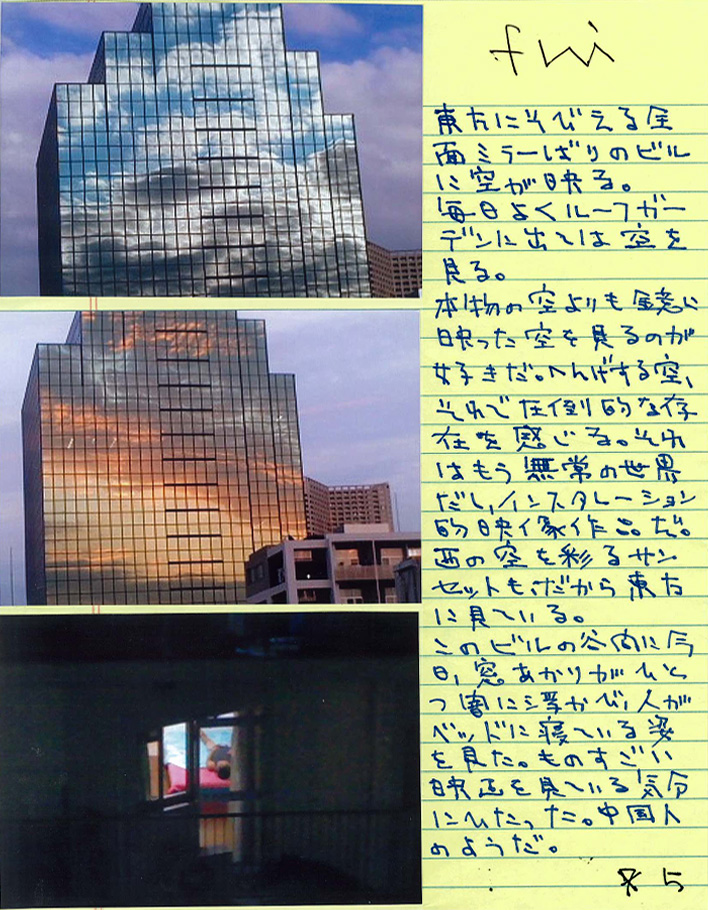 fwi
東方にそびえる全
面ミラーばりのビル
に空が映る。
毎日よくルーフガー
デンに出ては空を
見る。
本物の空よりも鏡に
映った空を見るのが
好きだ。へんげする空、
それで圧倒的な存
在を感じる。それ
はもう無常の世界
だし、インスタレーション
的映像作品だ。
西の空を彩るサン
セットも、だから東方
に見ている。
このビルの谷間に今
日、窓あかりがひと
つ闇に浮かび、人が
ベッドに寝ている姿
を見た。ものすごい
映画を見ている気分
にひたった。中国人
のようだ。